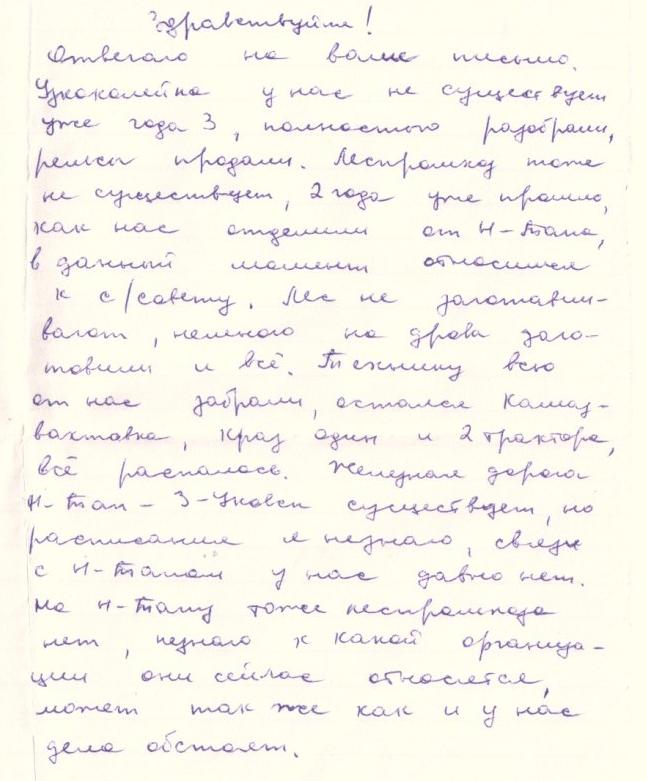 Здравствуйте!
Отвечаю на ваше письмо.
Узкоколейка у нас не существует
уже года 3, полностью разобрали,
рельсы продали. Леспромхоз тоже
не существует, 2 года уже прошло,
как нас отделили от Н-Тапа,
в данный момент относимся
к с/совету. Лес не заготавли-
вают, немного на дрова заго-
товили и всё. Технику всю
от нас забрали, остался Камаз-
вахтовка, Краз один и 2 трактора,
всё распалось. Железная дорога
Н-Тап – З-Уковск существует, но
расписания я незнаю, связи
с Н-Тапом у нас давно нет.
На Н-Тапу тоже леспромхоза
нет, незнаю к какой организа-
ции они сейчас относятся,
может так же как и у нас
дела обстоят.